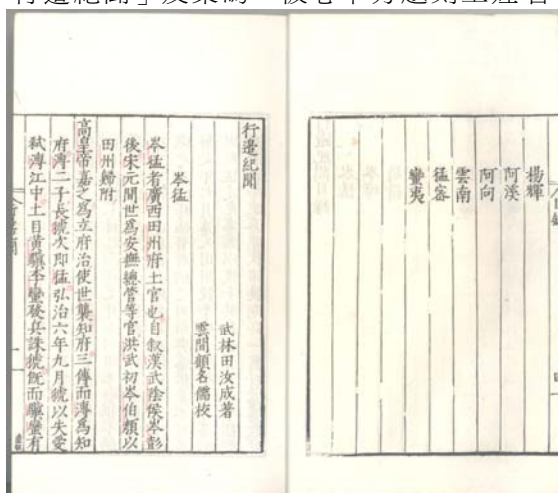 楊輝
阿溪
阿向
雲南
猛密
蠻夷
行邊紀聞
武林田汝成著
雲間顧名儒校
岑猛
岑猛者廣西田州府土官也自叙漢武陰侯岑彭
後宋元間世爲安撫總管等官洪武初岑伯顏以
田州歸附
高皇帝嘉之爲立府治使世襲知府三傳而溥爲知
府溥二子長猇次即猛弘治六年九月猇以失愛
弑溥江中土目黃驥李蠻發兵誅猇旣而驥蠻有